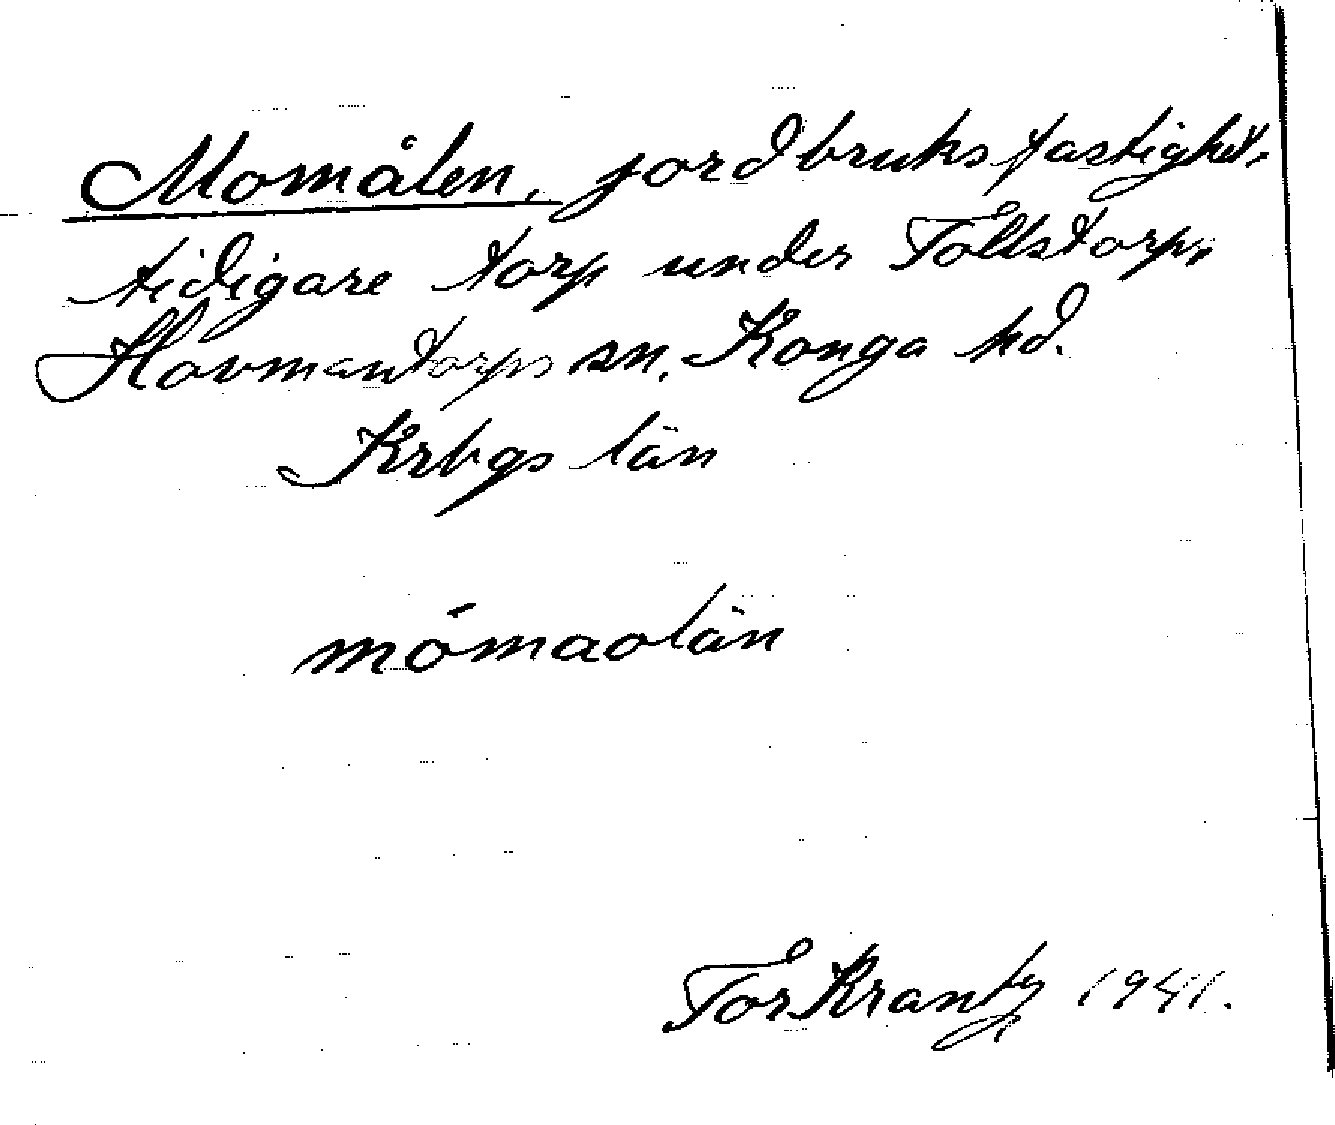 Momålen, jordbruksfastighet,
tidigare torp under Tollstorp,
Hovmantorps sn, Konga hd.
Krbgs län
mómaolän
Tor Krantz 1941.